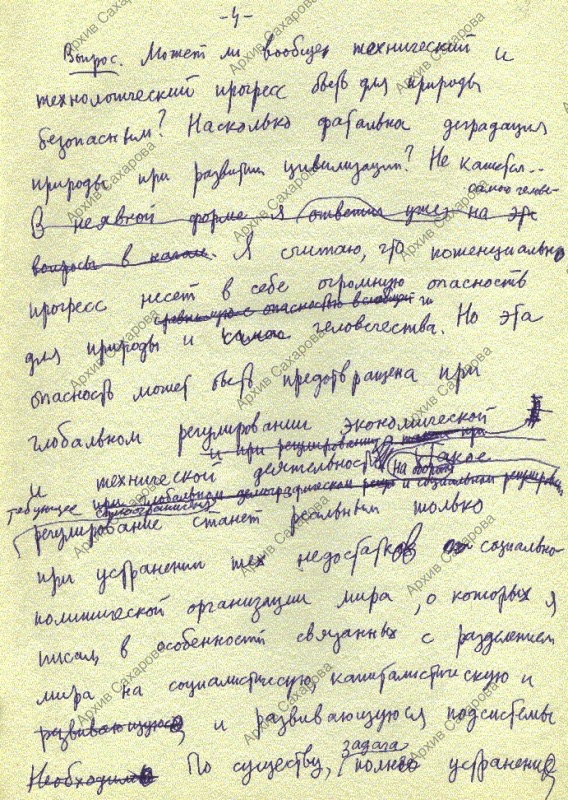 -4-
Вопрос. Может ли вообще технический и
технологический прогресс быть для природы
безопасным? Насколько фатальна деградация
природы при развитии цивилизации? Не кажется..
самого челове-
В неявной форме я ответил уже на эти
вопросы в начале. Я считаю, что потенциально
прогресс несет в себе огромную опасность
сравнимую с опасностью всеобщей
для природы и самого человечества. Но эта
опасность может быть предотвращена при
глобальном регулировании экономической
и при регулировании
и технической деятельности Такое
требующее при глобальном демографическом и социальном
самоограничения
регулирование станет реальным только
при устранении тех недостатков социально-
политической организации мира, о которых я
писал, в особенности связанных с разделением
мира на социалистическую, капиталистическую и
развивающуюся и развивающуюся подсистемы
Необходимо По существу, задача полное устранение
Архив Сахарова